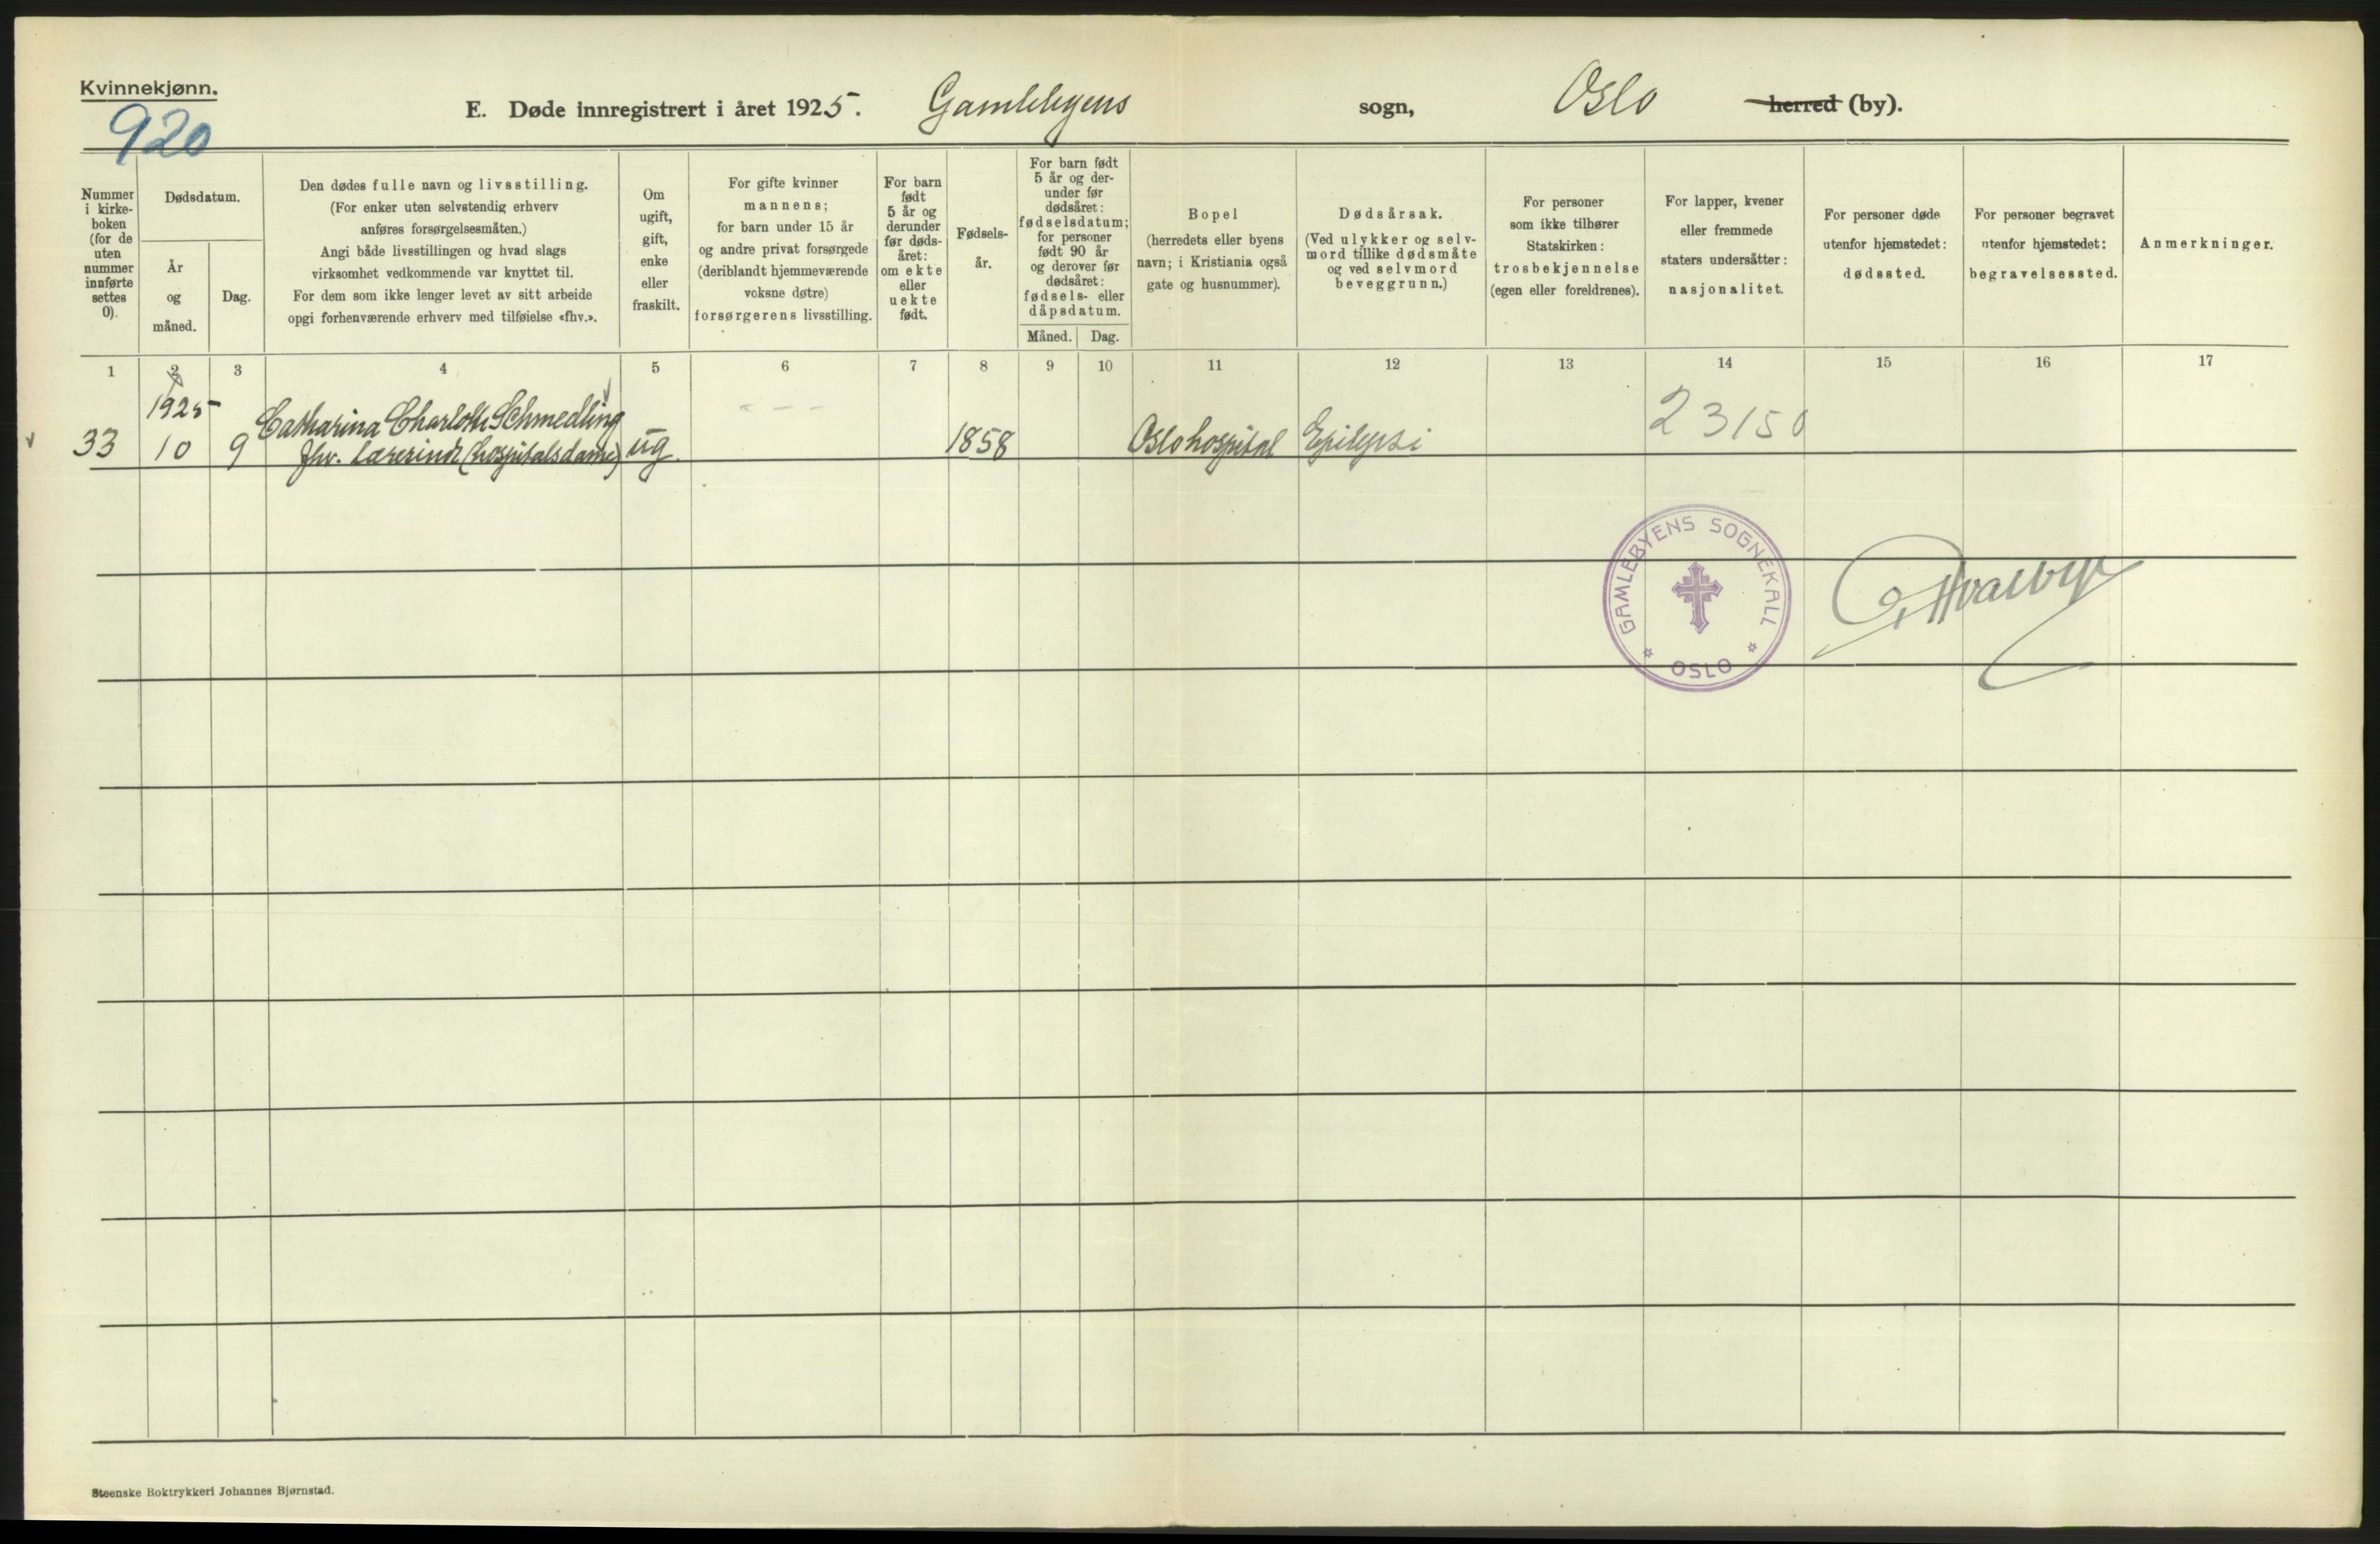 Kvinnekjønn.
920
E. Døde innregistrert i året 1925. Gamlebyens sogn, Oslo herred (by).
Nummer
i kirke-
boken
(for de
uten
nummer
innførte
settes
0).
Dødsdatum.
År
og
måned.
Dag.
Den dødes fulle navn og livsstilling.
(For enker uten selvstendig erhverv
anføres forsørgelsesmåten.)
Angi både livsstillingen og hvad slags
virksomhet vedkommende var knyttet til.
For dem som ikke lenger levet av sitt arbeide
opgi forhenværende erhverv med tilføielse «fhv.».
Om
ugift,
gift,
enke
eller
fraskilt.
For gifte kvinner
mannens;
for barn under 15 år
og andre privat forsørgede
(deriblandt hjemmeværende
voksne døtre)
forsørgerens livsstilling.
For barn
født
5 år og
derunder
før døds-
året:
om ekte
eller
uekte
født.
Fødsels-
år.
For barn født
5 år og der-
under før
dødsåret:
fødselsdatum;
for personer
født 90 år
og derover før
dødsåret:
fødsels- eller
dåpsdatum.
Måned.
Dag.
Bopel
(herredets eller byens
navn; i Kristiania også
gate og husnummer).
Dødsårsak.
(Ved ulykker og selv-
mord tillike dødsmåte
og ved selvmord
beveggrunn.)
For personer
som ikke tilhører
Statskirken:
trosbekjennelse
(egen eller foreldrenes).
For lapper, kvener
eller fremmede
staters undersåtter:
nasjonalitet.
For personer døde
utenfor hjemstedet:
dødssted.
For personer begravet
utenfor hjemstedet:
begravelsessted.
Anmerkninger.
1 2 3 4 5 6 7 8 9 10 11 12 13 14 15 16 17
1925 Catharina Charlotte Schmedling
33 10 9 fhv. Lærerinde (hospitalsdame) ug. 1858 Oslo hospital Epilepsi 23150
GAMLEBYENS SOGNEKALL
OSLO
Steenske Boktrykkeri Johannes Bjørnstad.